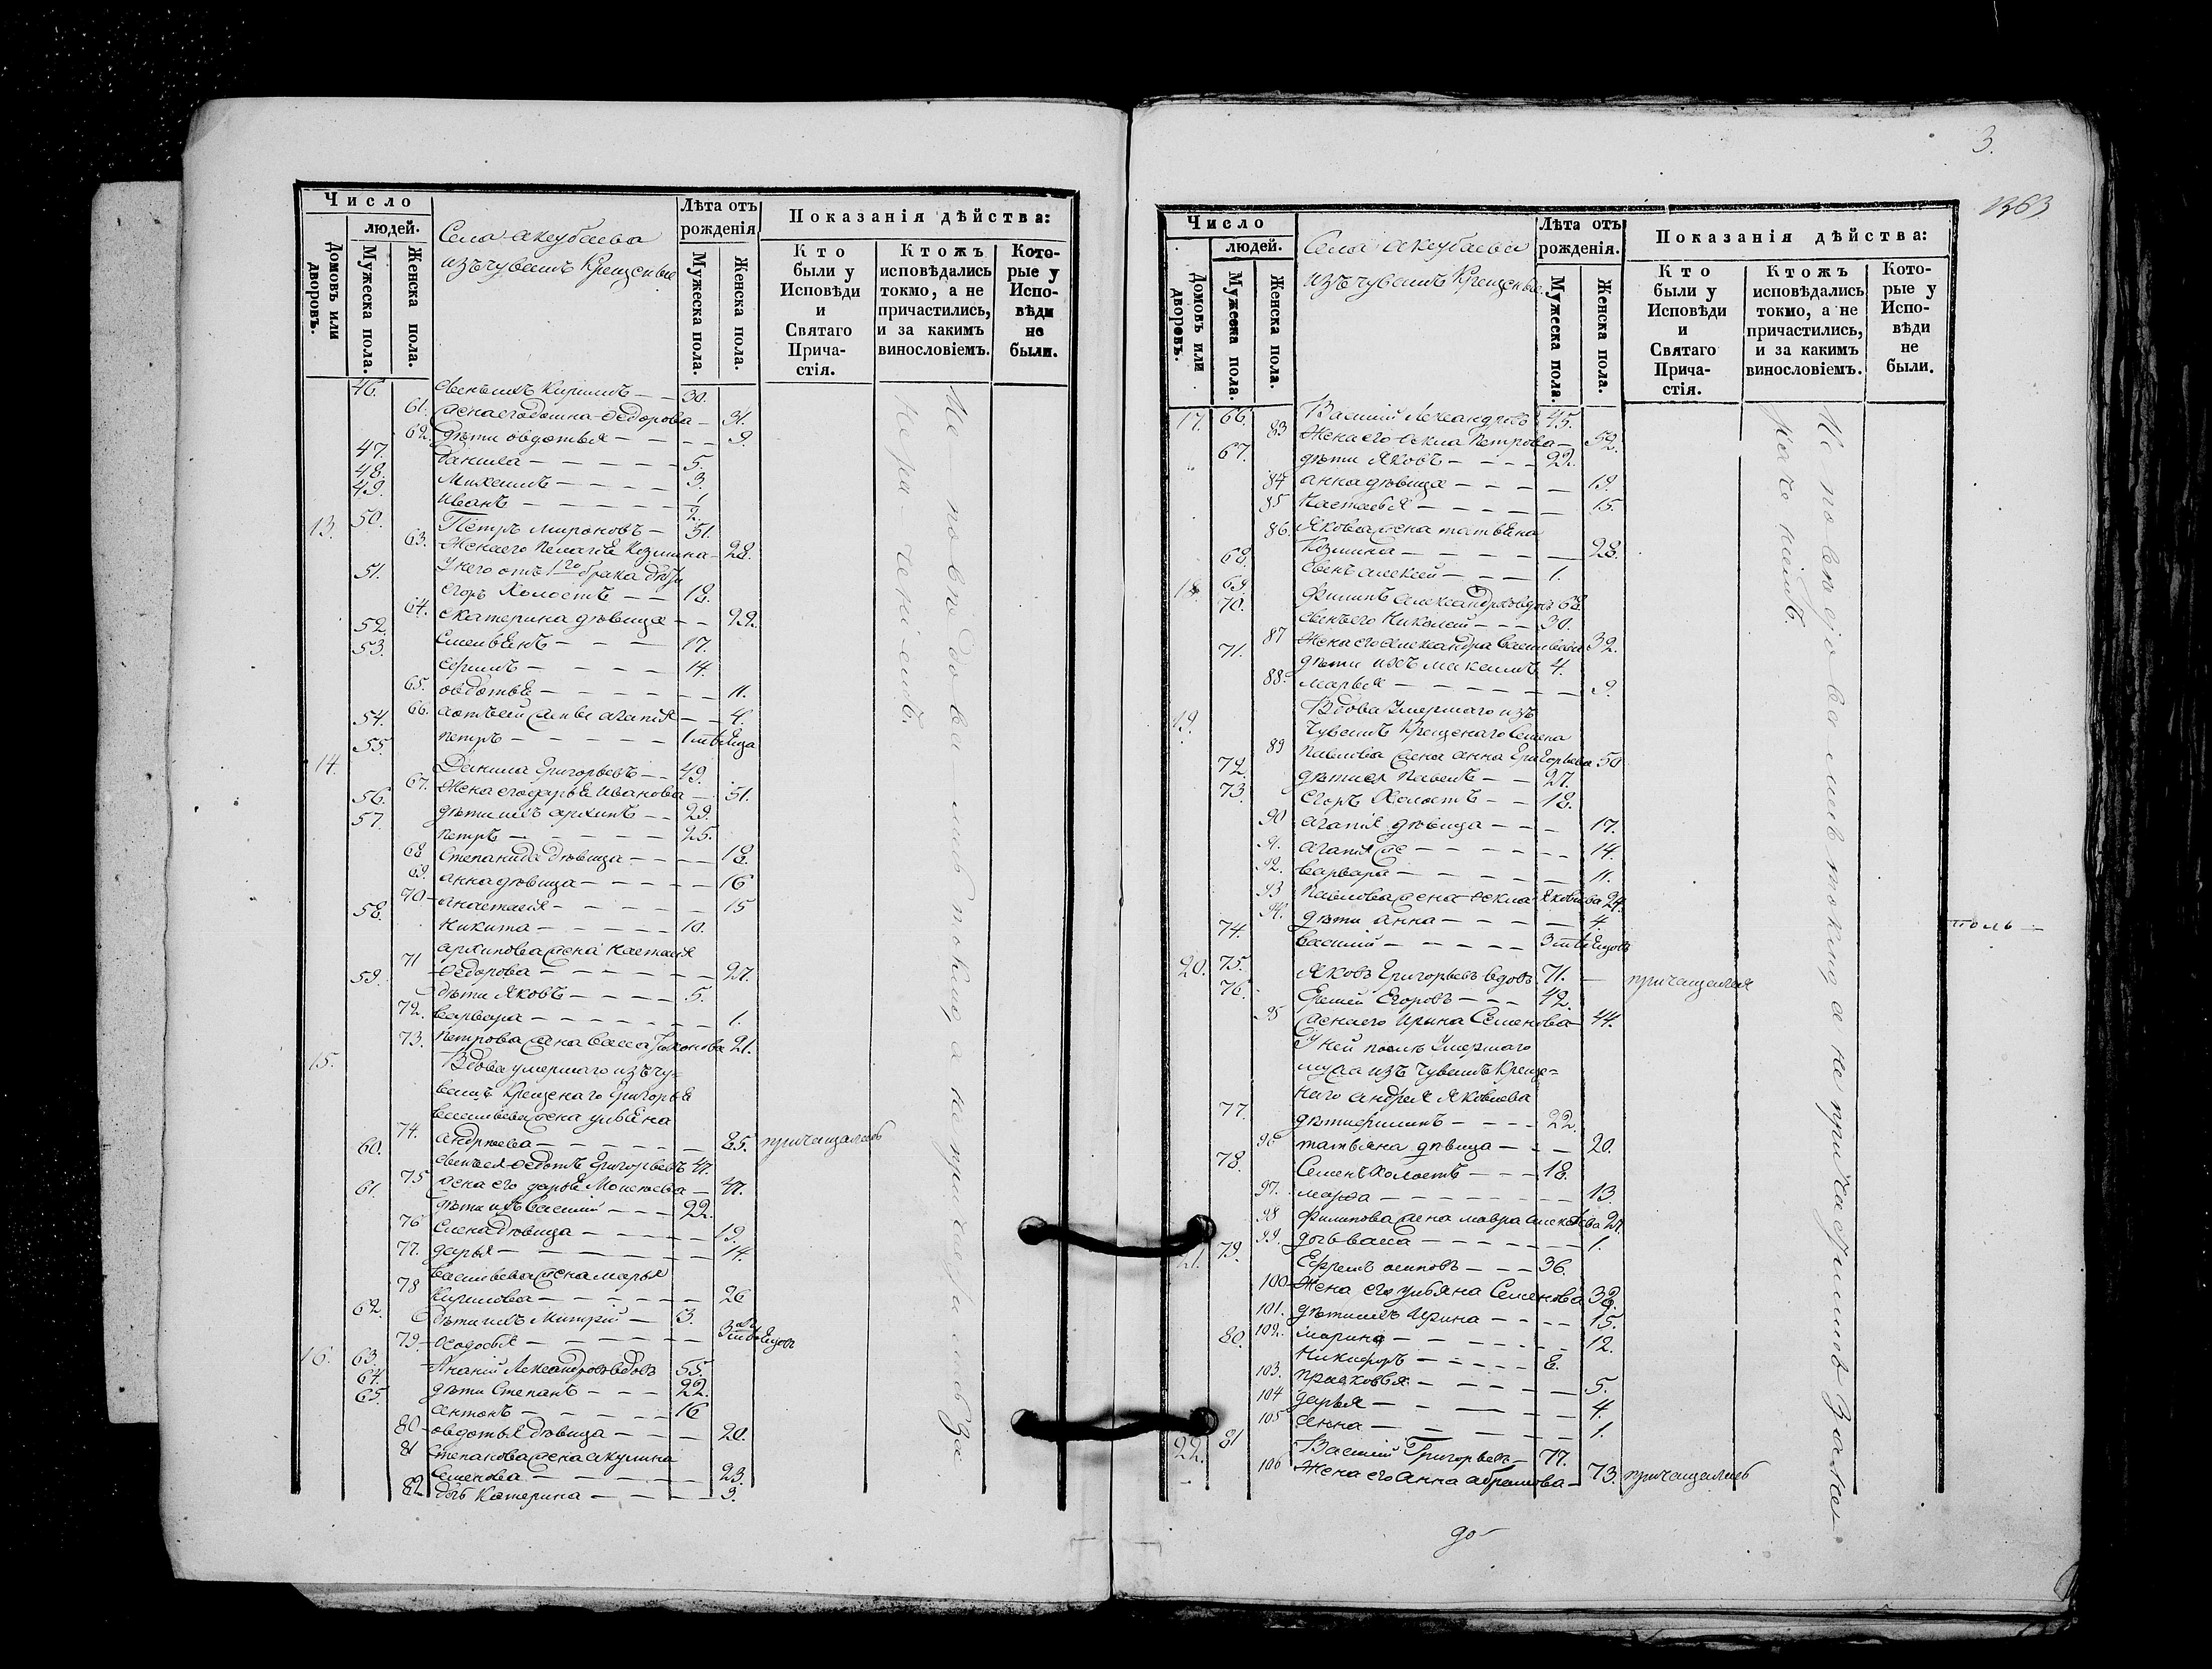 Число
людей.
Домовъ или дворовъ.
Мужеска пола.
Женска пола.
Села Акубаева
изъ чувашъ Крещеные
Лѣта отъ рожденія
Мужеска пола.
Женска пола.
Показанія дѣйства:
Кто были у Исповѣди и Святаго Причастія.
Ктожъ исповѣдались токмо, а не причастились, и за какимъ винословіемъ.
Которые у Исповѣди не были.
46. Сынъ ихъ Кирилъ 30.
61. Жена его домна Федорова 31.
62. дѣти овдотья 9.
47. данила 5.
48. Михаилъ 3.
49. Иванъ 1/2
13. 50. Петръ мироновъ 51.
63. Жена его Пелагіе Козмина 28.
У него отъ 1го брака дѣти
51. егоръ Холостъ 18.
64. екатерина дѣвица 22.
52. 17.
53. 14.
65. овдотье 11.
66. агапія 4.
54.
55. петръ
14. Данила Григорьевъ 49.
67. Жена его дарье Иванова 51.
56. дѣти ихъ архипъ 29.
57. петръ 25.
68 степанида дѣвица 18.
69. анна дѣвица 16
70 Анастасия 15
58. Никита 10.
архипова жена Настасия
71 Федорова 27.
59. дѣти Яковъ 5.
72. варвара 1.
73. петрова жена васса 21.
15. Вдова умершаго изъ чу=
вашъ Крещенаго Григорье
васильева жена ульяна
74. андрѣева 85. причащалась
60. сынъ ея Федотъ Григорьевъ 47.
75 жена его дарье Моисеева 47.
61. дѣти ихъ василий 22.
76 елена дѣвица 19.
77. дарья 14.
васильева жена марья
78 Кирилова 26
62. дѣти ихъ Митрий 3.
79. Федосья
16. 63. Ананий Александровъ вдовъ 55.
64. дѣти Степанъ 22.
65. антонъ 16
80 овдотья дѣвица 20.
81 степанова жена акулина
Семенова 23.
82 дочь Катерина 3.
Исповѣдовались токмо, а не причастились за
нерачениемъ.
3.
1363
Число
людей.
Домовъ или дворовъ.
Мужеска пола.
Женска пола.
Села Акубаева
изъ чувашъ Крещеные
Лѣта отъ рожденія.
Мужеска пола.
Женска пола.
Показанія дѣйства:
Кто были у Исповѣди и Святаго Причастія.
Ктожъ исповѣдались токмо, а не причастились, и за какимъ винословіемъ.
Которые у Исповѣди не были.
17. 66. Василий Александровъ 45.
83 Жена его Фекла Петрова 52.
67. дѣти Яковъ 22.
84 анна дѣвица 19.
85 Настасья 15.
86. Якова жена татьяна
Козмина 28.
68. Сынъ алексей 1.
18. 69. Филипъ александровъ вдовъ 68.
70. сынъ его Николай 30.
87 Жена его александра васильева 32.
71. дѣти ихъ максимъ 4.
88. марья 9.
19. Вдова умершаго изъ
Чувашъ Крещенаго Семена
89 Павлова жена анна Григорьева 50
72. дѣти ея Павелъ 27.
73. егоръ Холостъ 18.
90 агапия дѣвица 17.
91. агапия же 14.
92. варвара 11.
93 Павлова жена Фекла Яковлева 24.
94. дѣти анна 4.
74. василий 3 мѣсяцовъ
20. 75. Яковъ Григорьевъ вдовъ 71. причащался
76. Егоровъ 42.
95 Жена его Ирина Семенова 44.
У ней послѣ умершаго
мужа изъ чувашъ Креще=
наго андрея Яковлева
77. дѣти филипъ 22.
96 татьяна дѣвица 20.
78. Семенъ холостъ 18.
97. марфа 13.
98 Филипова жена мавра алексѣева 27.
99. дочь васса 1.
21. 79. Ефремъ осиповъ 36.
100 Жена его ульяна Семенова 38.
101. дѣти ихъ Ирина 15.
102. марина 12.
80. Никифоръ 8.
103. прасковья 5.
104 дарья 4.
105 анна 1.
22. 81 Василий Григорьевъ 77.
106 Жена его Анна абрамова 73. причащались
Исповѣдовались токмо, а не причастились за не
рачениемъ.